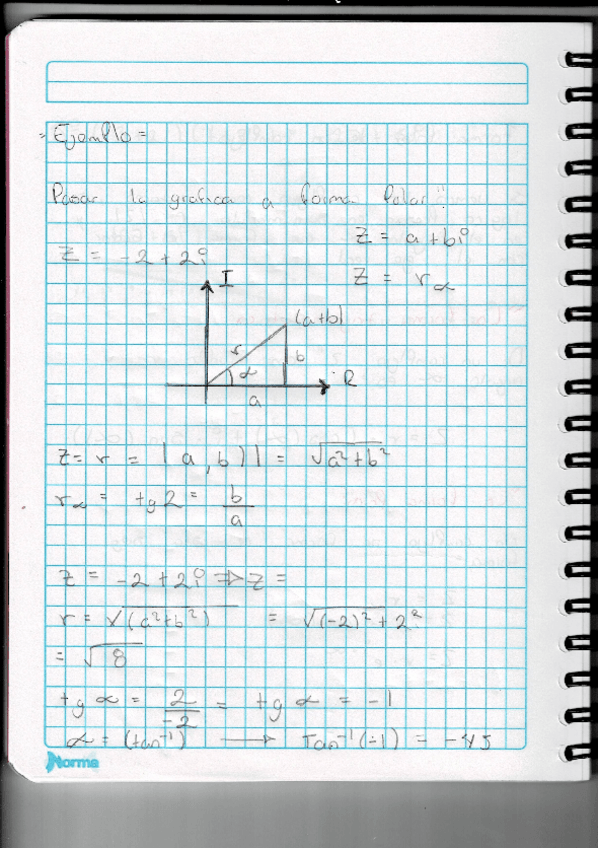 = Ejemplo =
Pasar la grafica a forma Polar"
Z = a + bi
Z = -2 + 2i
Z = r α
I
(a+b)
r
b
α
R
a
Z = r = | a , b ) | = √a²+b²
r α = tg 2 = b/a
Z = -2 + 2i ⇒ Z =
r = √(a²+b²) = √(-2)² + 2²
= √8
tg α = 2/-2 = tg α = -1
α = (tan⁻¹) → Tan⁻¹(-1) = -45
Norma